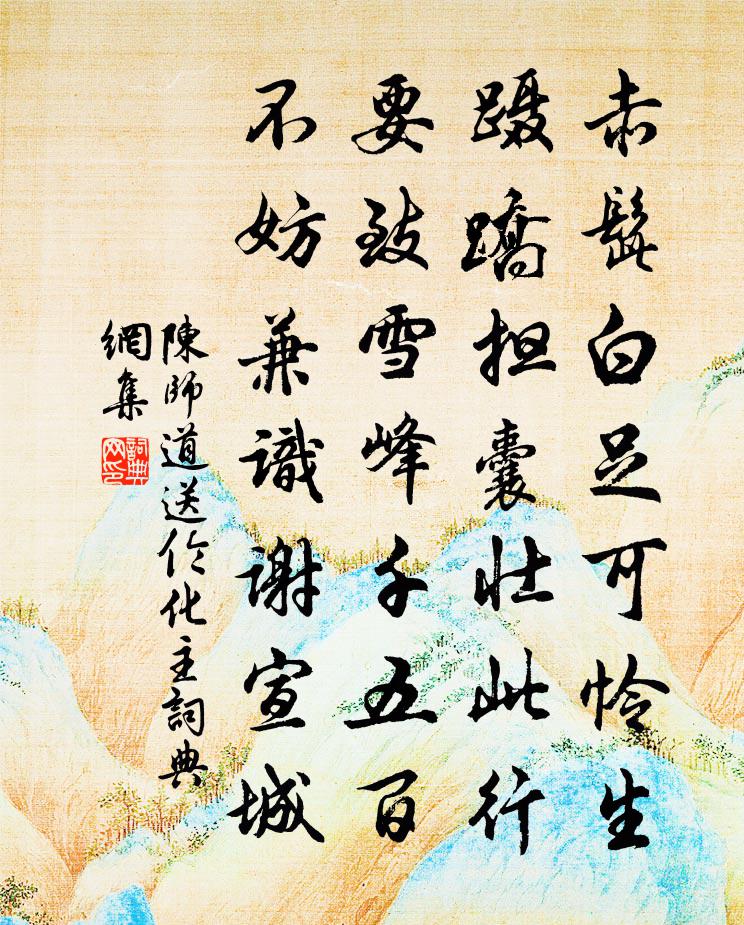 赤髭白足可怜生
蹑蹻担囊壮此行
要致雪峰千五百
不妨兼識谢宣城
陳師道送伦化主詞典
網集
詞典
网印